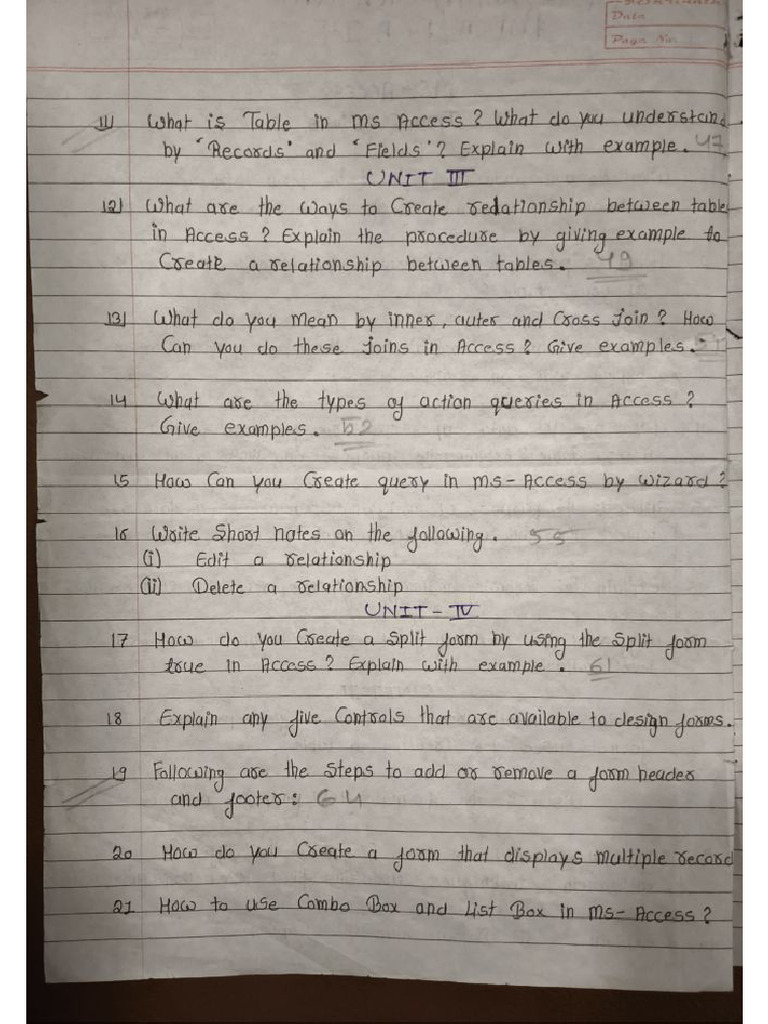 Date
Page No.
11) What is Table in ms Access? What do you understand
by 'Records' and 'Fields'? Explain with example. 47
UNIT III
12) What are the ways to Create redationship between table
in Access? Explain the procedure by giving example to
Create a relationship between tables. 49
13) What do you mean by inner, outer and Cross Join? How
Can you do these joins in Access? Give examples.
14 What are the types of action queries in Access?
Give examples. 52
15 How Can you Create query in ms-Access by wizard?
16 Write Short notes on the following. 55
(i) Edit a relationship
(ii) Delete a relationship
UNIT-IV
17 How do you Create a Split form by using the Split form
true in Access? Explain with example. 61
18 Explain any five Controls that are available to design forms.
19 Following are the Steps to add or remove a form header
and footer: 64
20 How do you Create a form that displays multiple record
21 How to use Combo Box and List Box in ms-Access?